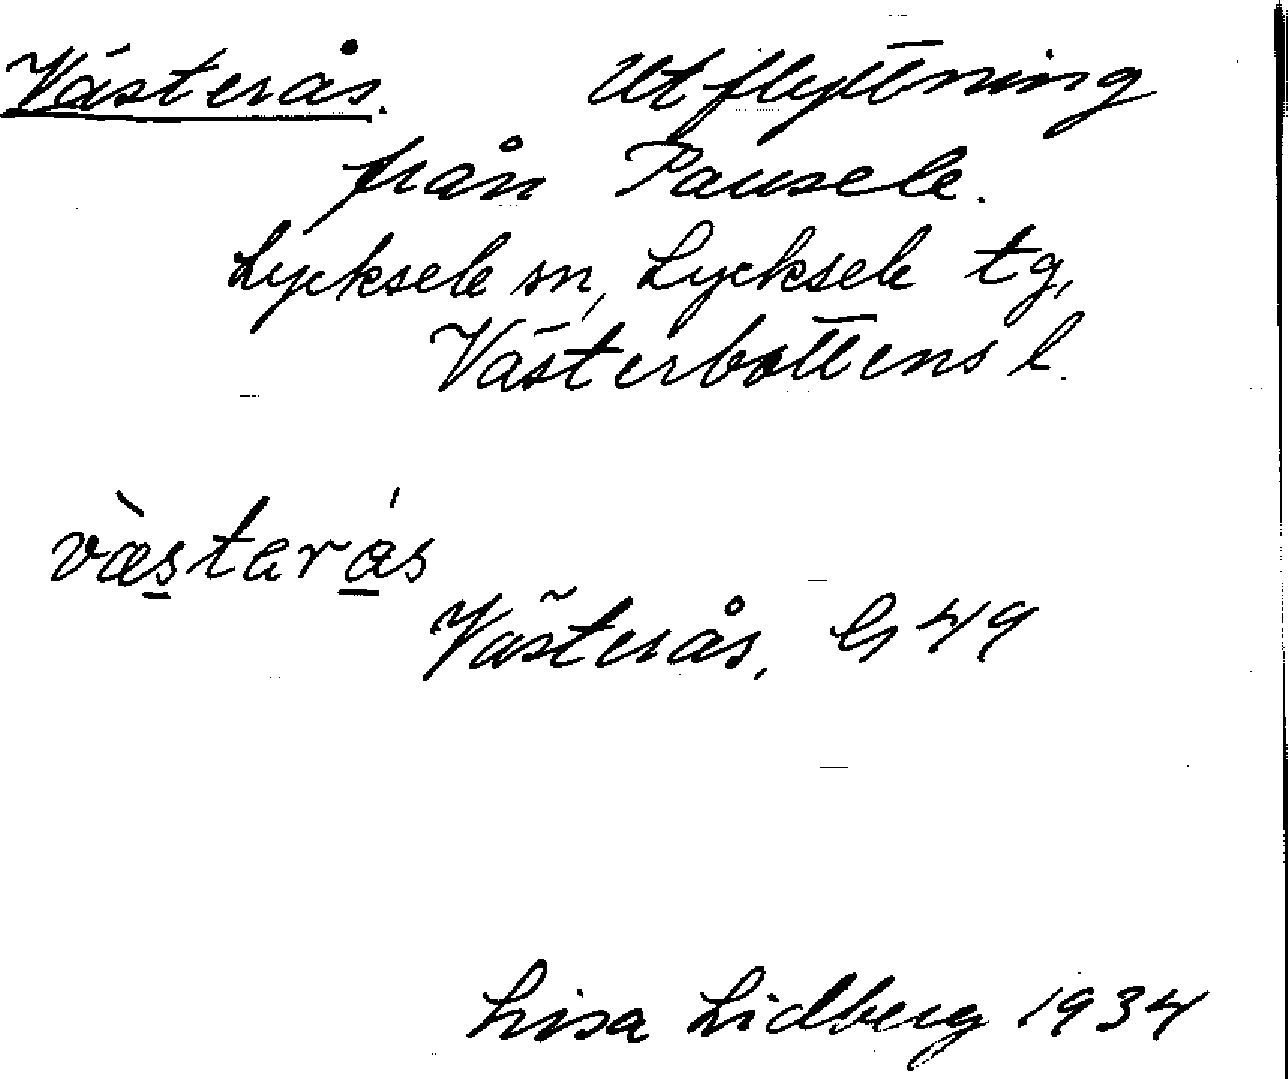 Västerås. Utflyttning
från Pausele.
Lycksele sn, Lycksele tg,
Västerbottens l.
vàstarás
Västerås, G 49
Lisa Lidberg 1934